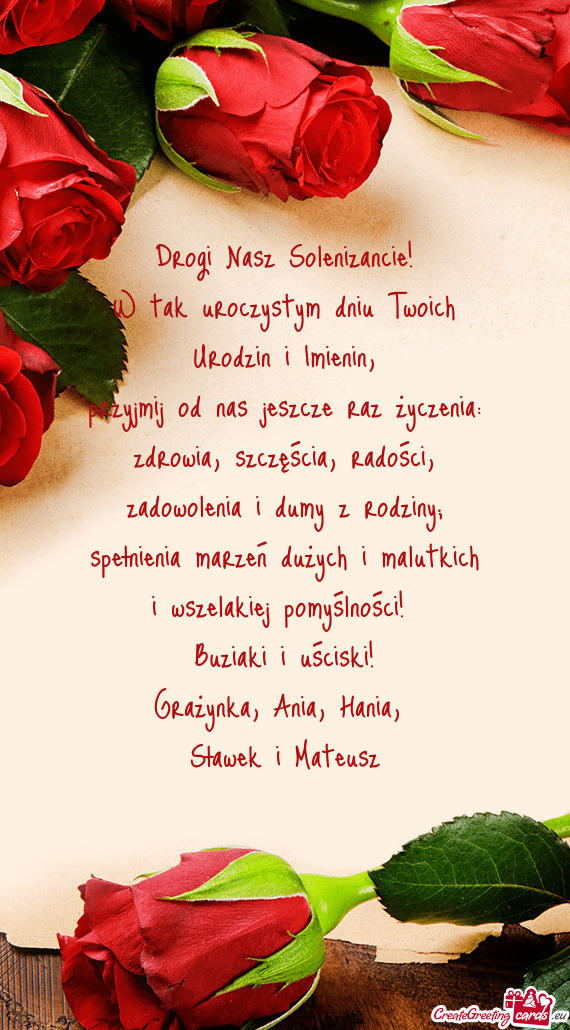 Drogi Nasz Solenizancie!
W tak uroczystym dniu Twoich
Urodzin i Imienin,
przyjmij od nas jeszcze raz życzenia:
zdrowia, szczęścia, radości,
zadowolenia i dumy z rodziny;
spełnienia marzeń dużych i malutkich
i wszelakiej pomyślności!
Buziaki i uściski!
Grażynka, Ania, Hania,
Sławek i Mateusz
CreateGreeting cards .eu